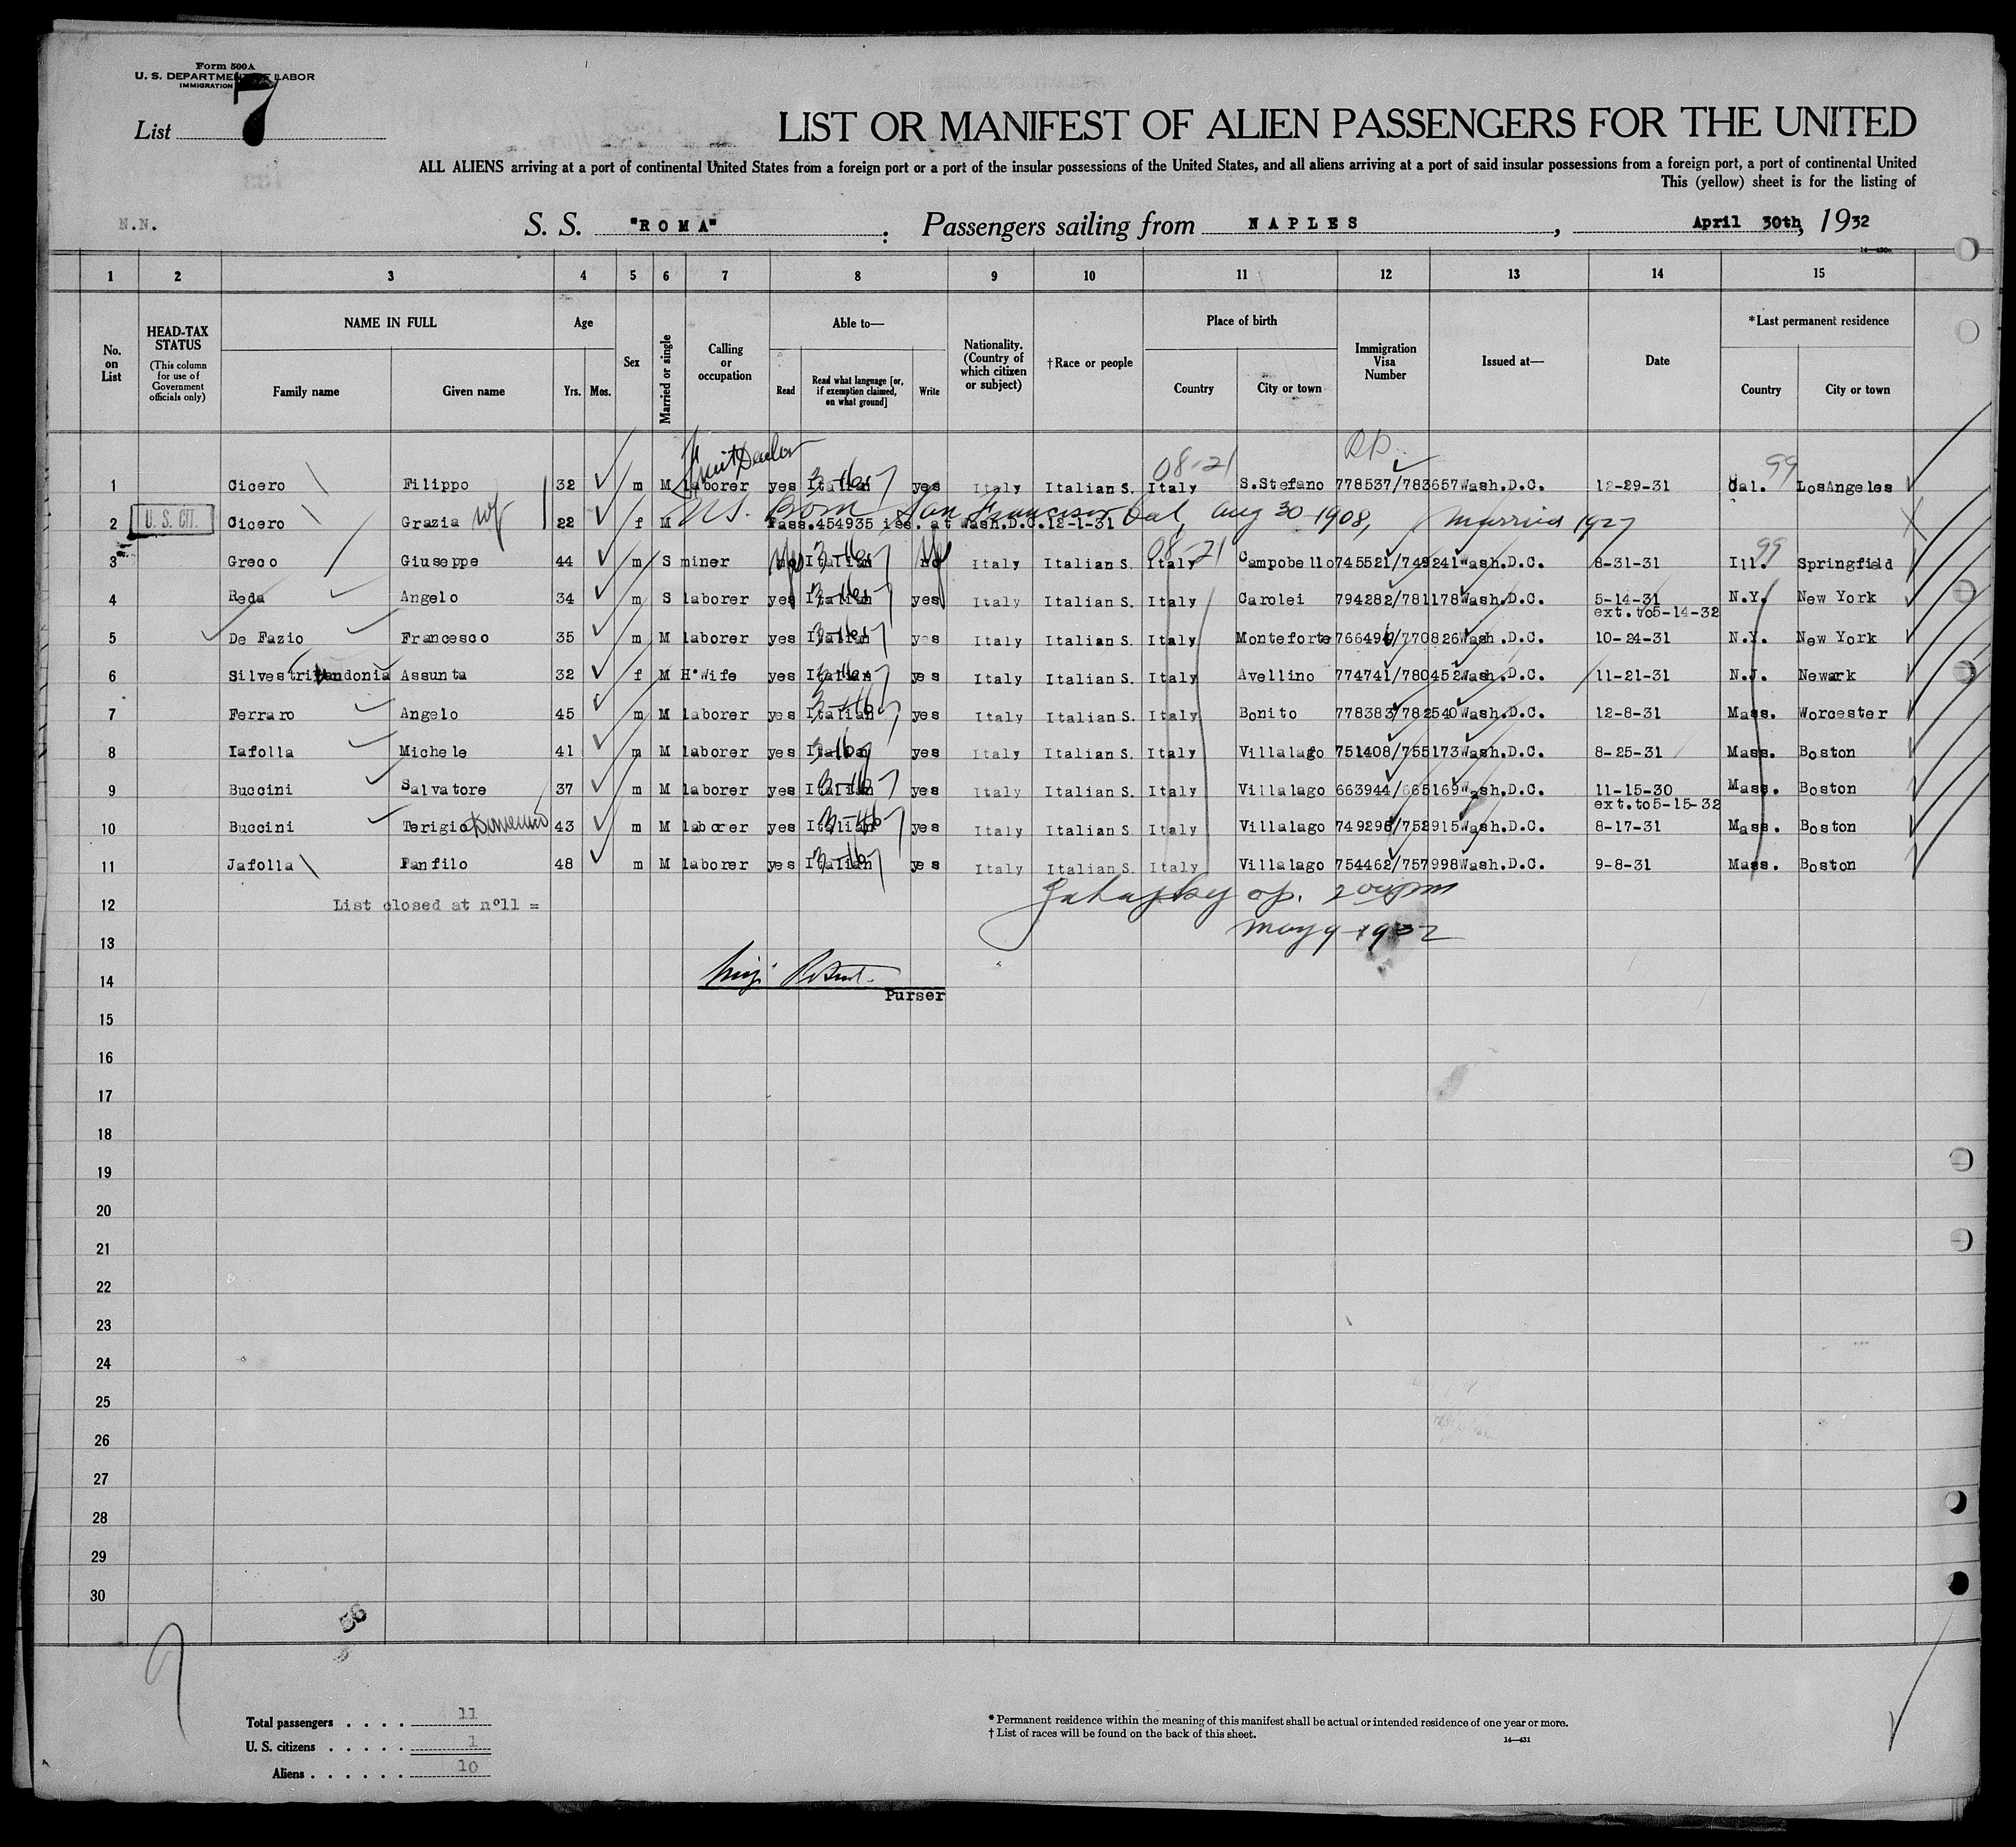 Form 500A
U. S. DEPARTMENT OF LABOR
IMMIGRATION
List 7
LIST OR MANIFEST OF ALIEN PASSENGERS FOR THE UNITED
ALL ALIENS arriving at a port of continental United States from a foreign port or a port of the insular possessions of the United States, and all aliens arriving at a port of said insular possessions from a foreign port, a port of continental United
This (yellow) sheet is for the listing of
N.N. S. S. "ROMA" ; Passengers sailing from NAPLES, April 30th, 1932
14—430a
1 2 3 4 5 6 7 8 9 10 11 12 13 14 15
No. on List HEAD-TAX STATUS (This column for use of Government officials only) NAME IN FULL Family name Given name Age Yrs. Mos. Sex Married or single Calling or occupation Able to— Read Read what language [or, if exemption claimed, on what ground] Write Nationality. (Country of which citizen or subject) †Race or people Place of birth Country City or town Immigration Visa Number Issued at— Date *Last permanent residence Country City or town
Fruit Dealer 08-21 99
1 Cicero Filippo 32 m M laborer yes Italian yes Italy Italian S. Italy S.Stefano 778537/783657 Wash.D.C. 12-29-31 Cal. LosAngeles
2 U. S. CIT. Cicero Grazia wf 22 f M U.S. Born San Francisco Cal, Aug 30 1908, married 1927
Pass.454935 iss. at Wash.D.C.12-1-31
08-21 99
3 Greco Giuseppe 44 m S miner no yes Italian no yes Italy Italian S. Italy Campobello 745521/749241 Wash.D.C. 8-31-31 Ill. Springfield
4 Reda Angelo 34 m S laborer yes Italian yes Italy Italian S. Italy Carolei 794282/781178 Wash.D.C. 5-14-31 N.Y. New York
ext.to5-14-32
5 De Fazio Francesco 35 m M laborer yes Italian yes Italy Italian S. Italy Monteforte 766494/770826 Wash.D.C. 10-24-31 N.Y. New York
6 Silvestri Assunta 32 f M H.Wife yes Italian yes Italy Italian S. Italy Avellino 774741/780452 Wash.D.C. 11-21-31 N.J. Newark
7 Ferraro Angelo 45 m M laborer yes Italian yes Italy Italian S. Italy Bonito 778383/782540 Wash.D.C. 12-8-31 Mass. Worcester
8 Iafolla Michele 41 m M laborer yes Italian yes Italy Italian S. Italy Villalago 751408/755173 Wash.D.C. 8-25-31 Mass. Boston
9 Buccini Salvatore 37 m M laborer yes Italian yes Italy Italian S. Italy Villalago 663944/665169 Wash.D.C. 11-15-30 Mass. Boston
ext.to5-15-32
10 Buccini Terigio 43 m M laborer yes Italian yes Italy Italian S. Italy Villalago 749296/752915 Wash.D.C. 8-17-31 Mass. Boston
11 Jafolla Panfilo 48 m M laborer yes Italian yes Italy Italian S. Italy Villalago 754462/757998 Wash.D.C. 9-8-31 Mass. Boston
12 List closed at nº11 =
13 May 9 1932
14
Purser
15
16
17
18
19
20
21
22
23
24
25
26
27
28
29
30
Total passengers . . . . 11
U. S. citizens . . . . . 1
Aliens . . . . . . 10
* Permanent residence within the meaning of this manifest shall be actual or intended residence of one year or more.
† List of races will be found on the back of this sheet.
14—431